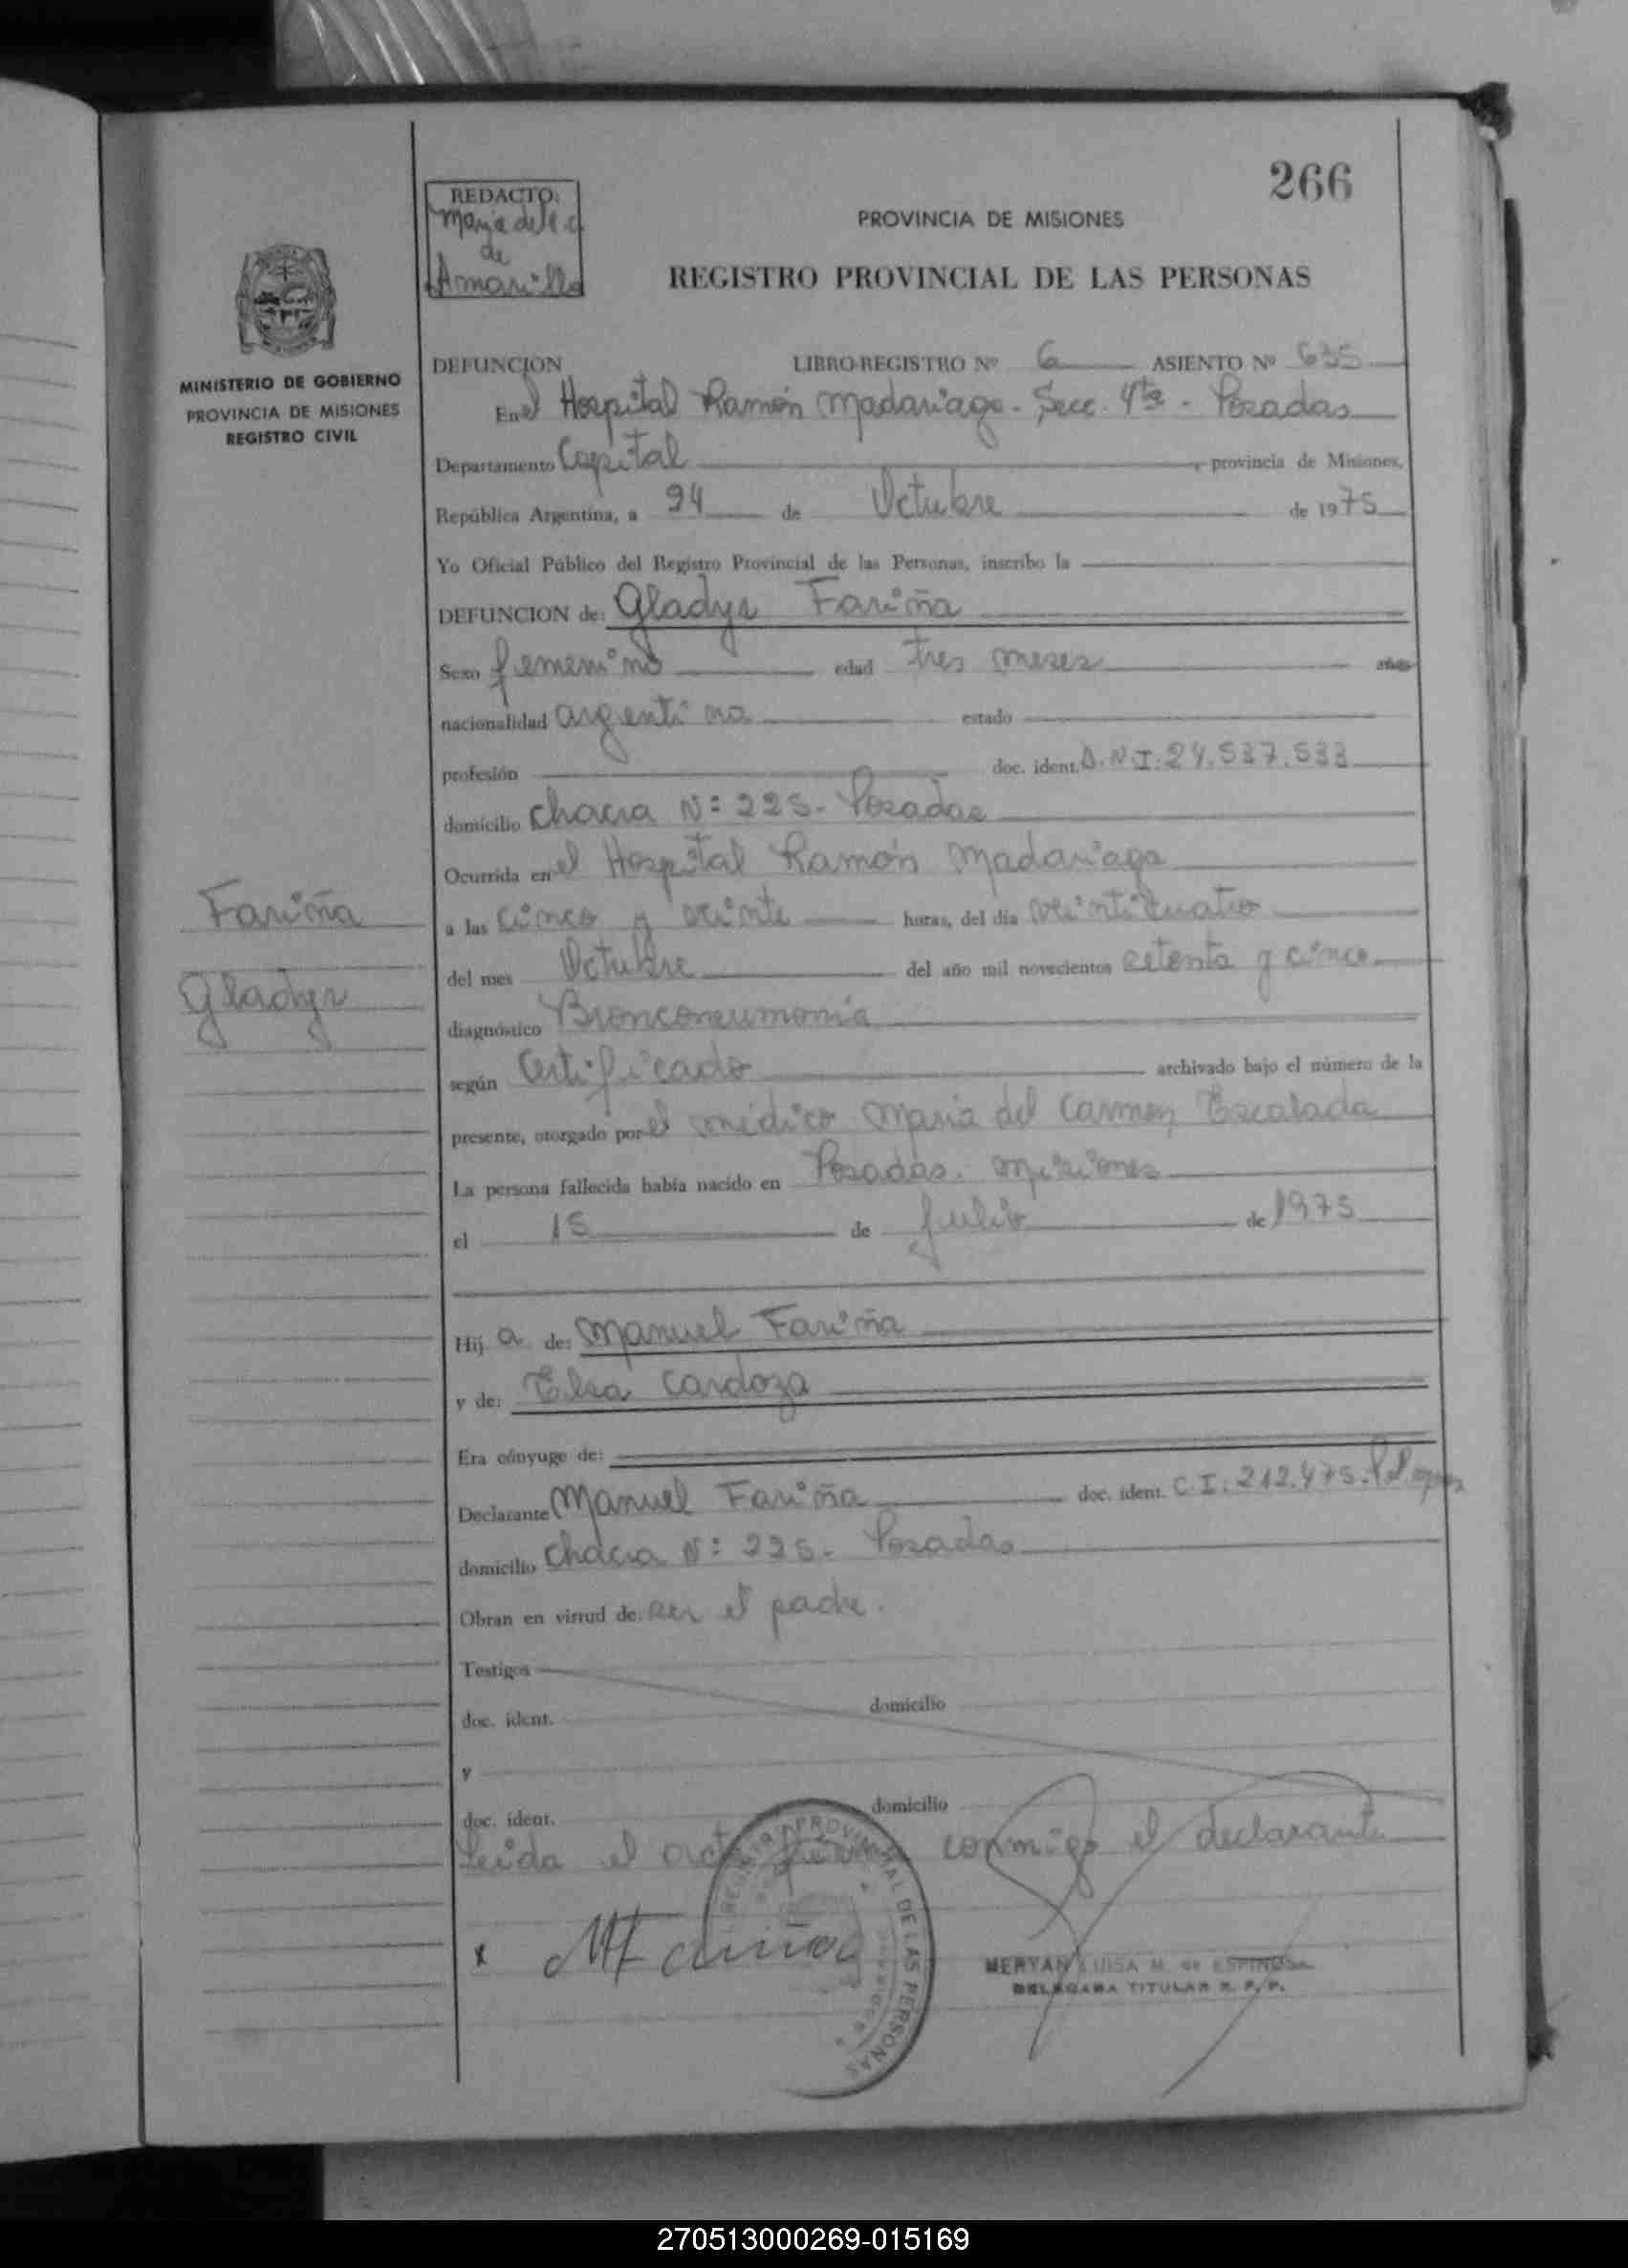 266
REDACTO:
Maria del C.
de
Amarilla
PROVINCIA DE MISIONES
REGISTRO PROVINCIAL DE LAS PERSONAS
MINISTERIO DE GOBIERNO
PROVINCIA DE MISIONES
REGISTRO CIVIL
DEFUNCION LIBRO-REGISTRO Nº 6 ASIENTO Nº 635
En el Hospital Ramón Madariaga - Secc. 4ta - Posadas
Departamento Capital , provincia de Misiones,
República Argentina, a 24 de Octubre de 1975
Yo Oficial Público del Registro Provincial de las Personas, inscribo la
DEFUNCION de: Gladys Fariña
Sexo femenino edad tres meses años
nacionalidad argentina estado
profesión doc. ident. D.N.I: 24.537.533
domicilio Chacra Nº: 225 - Posadas
Ocurrida en el Hospital Ramón Madariaga
a las cinco y veinte horas, del día veinticuatro
del mes Octubre del año mil novecientos setenta y cinco
diagnóstico Bronconeumonía
según Certificado archivado bajo el número de la
presente, otorgado por el médico María del Carmen Escalada
La persona fallecida había nacido en Posadas. Misiones
el 15 de Julio de 1975
Hija de: Manuel Fariña
y de: Elsa Cardoza
Era cónyuge de:
Declarante Manuel Fariña doc. ident. C.I: 212.475.
domicilio Chacra Nº: 225 - Posadas
Obran en virtud de ser el padre.
Testigos
doc. ident. domicilio
y
doc. ident. domicilio
Leida el acta firma conmigo el declarante
x MFariña
REGISTRO PROVINCIAL DE LAS PERSONAS
MERYAN LUISA M. de ESPINOSA
DELEGADA TITULAR R. P. P.
Fariña
Gladys
270513000269-015169